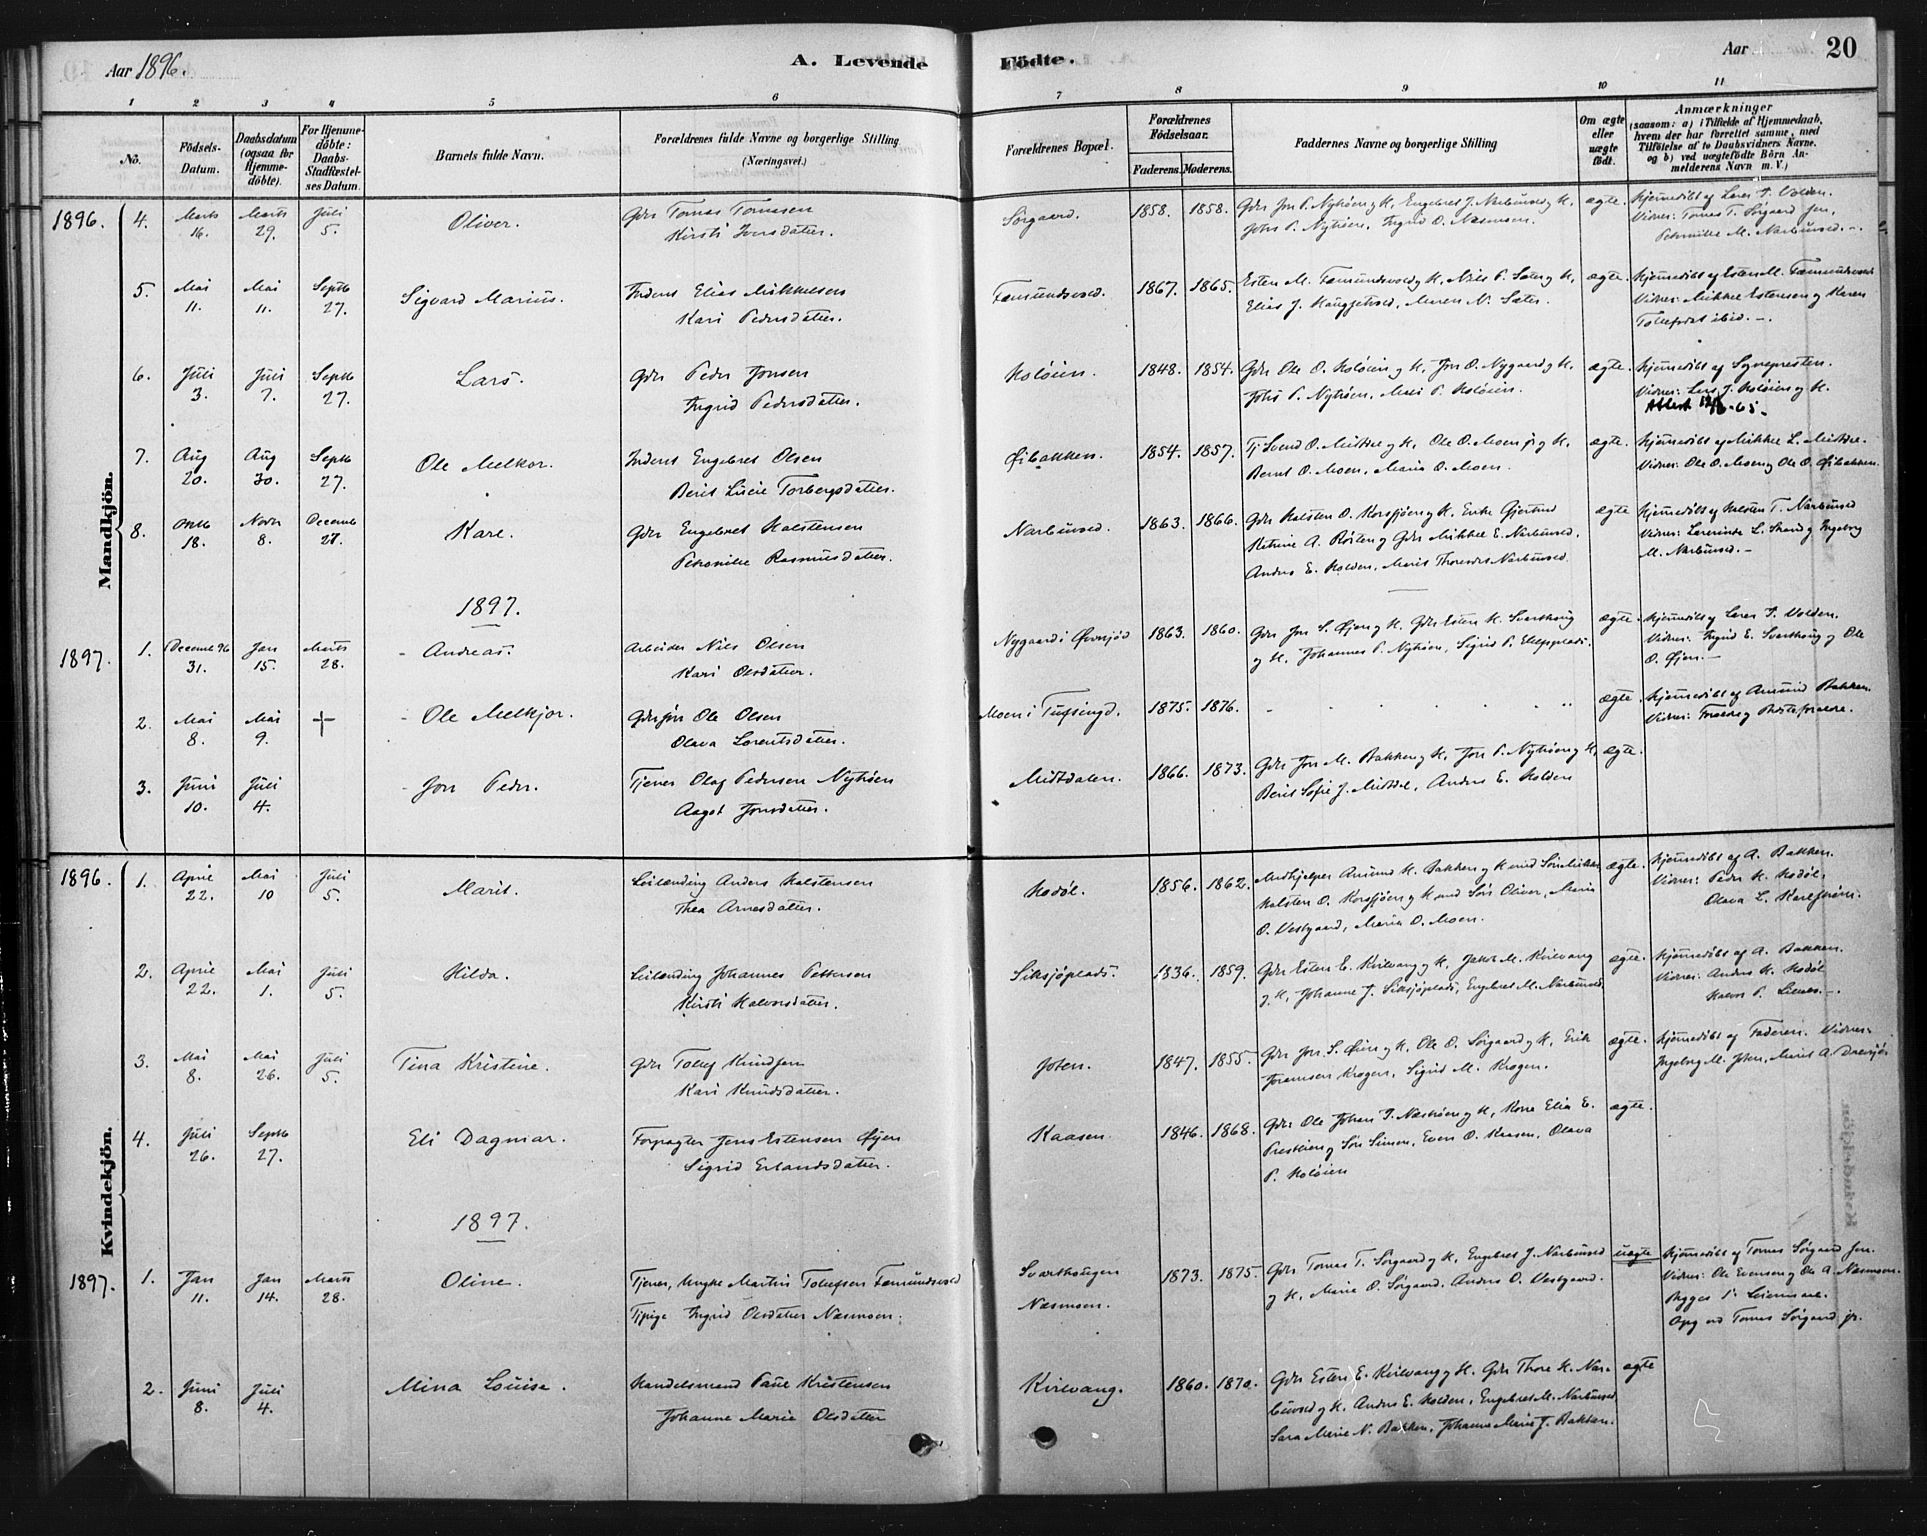 Aar 1896.
A. Levende
Födte.
Aar
20
1 2 3 4 5 6 7 8 9 10 11
No.
Födsels-
Datum.
Daabsdatum
(ogsaa for
Hjemme-
döbte).
For Hjemme-
döbte:
Daabs-
Stadfæstel-
ses Datum.
Barnets fulde Navn.
Forældrenes fulde Navne og borgerlige Stilling
(Næringsvei.)
Forældrenes Bopæl.
Forældrenes
Födselsaar.
Faderens. Moderens.
Faddernes Navne og borgerlige Stilling
Om ægte
eller
uægte
födt.
Anmærkninger
(saasom: a) i Tilfælde af Hjemmedaab,
hvem der har forrettet samme, med
Tilföielse af to Daabsvidners Navne.
og b) ved uægtefödte Börn An-
melderens Navn m. V.)
Mandkjön.
1896. 4. Marts 16. Marts 29. Juli 5. Oliver. Gdr Tomas Tomasen
Kirsti Iversdatter.
Sørgaard. 1858. 1858. Gdr Jon P. Nyhøen og K, Engebret J. Narbuvold og K,
Johs P. Nyhøen, Ingrid O. Næsmoen.
ægte. Hjemmedøbt af Lars T. Volden.
Vidner: Tomas T. Sørgaard jun,
Petronille M. Narbuvold.
5. Mai 11. Mai 11. Septb 27. Sigvard Marius. Inderst Elias Mikkelsen
Kari Pedersdatter.
Fæmundsvold. 1867. 1865. Esten M. Fæmundsvold og K, Nils P. Sæter og K,
Elias J. Haugsetvold, Maren N. Sæter.
ægte. Hjemmedøbt af Esten M. Fæmundsvold
Vidner: Mikkel Estensen og Karen
Tollefsdat ibid.
6. Juli 3. Juli 7. Septb 27. Lars. Gdr Peder Jonsen
Ingrid Pedersdatter.
Holøien. 1848. 1854. Gdr Ole O. Holøien og K, Jon O. Nygaard og K,
Johs P. Nyhøen, Mari P. Holøien.
ægte. Hjemmedøbt af Sognepresten.
Vidner: Lars J. Holøien og K.
7. Aug 20. Aug 30. Septb 27. Ole Melkor. Inderst Engebret Olsen
Berit Lucie Torbergsdatter.
Øibakken. 1854. 1857. Tj Svend O. Mistdal og K, Ole O. Moen jr og K,
Bernt O. Moen, Maria O. Moen.
ægte. Hjemmedøbt af Mikkel L. Mistdal.
Vidner: Ole O. Moen og Ole O. Øibakken.
8. Oktb 18. Novbr 8. Decemb 27. Kare. Gdr Engebret Halstensen
Petronille Rasmusdatter.
Narbuvold. 1863. 1866. Gdr Halsten O. Korssjøen og K, Enke Gjertrud
Katrine A. Røsten og Gdr Mikkel E. Narbuvold,
Anders E. Holden, Marit Thoresdat Narbuvold.
ægte Hjemmedøbt af Halsten T. Narbuvold
Vidner: L. Strand og Ingeborg
M. Narbuvold.
1897.
1897. 1. Decemb 96 31. Jan 15. Marts 28. Andreas. Arbeider Nils Olsen
Kari Olsdatter.
Nygaard i Øversjød 1863. 1860. Gdr Jon S. Øien og K, Gdr Esten K. Svarthaug
og K, Johannes P. Nyhøen, Sigrid P. Elgsplads.
ægte. Hjemmedøbt af Lars T. Volden.
Vidner: Ingrid E. Svarthaug og Ole
O. Øien.
2. Mai 8. Mai 9. † Ole Melkjor. Gdrsøn Ole Olsen
Olava Lorentsdatter.
Moen i Tufsingd. 1875. 1876. ægte. Hjemmedøbt af Amund Bakken.
Vidner: Forældre og Bedsteforældre.
3. Juni 10. Juli 4. Jon Peder. Tjener Olaf Pedersen Nyhøen
Aagot Jonsdatter.
Mistdalen. 1866. 1873. Gdr Jon M. Bakken og K, Jon P. Nyhøen og K,
Berit Sofie J. Mistdal, Anders E. Holden
ægte.
Kvindekjön.
1896. 1. April 22. Mai 10 Juli 5. Marit. Leilænding Anders Halstensen
Thea Arnesdatter.
Hodøl. 1856. 1862. Medhjelper Amund H. Bakken og K med Søn Mikkel,
Halsten O. Korssjøen og K med Søn Oliver, Maria
O. Vestgaard, Maria O. Moen.
ægte. Hjemmedøbt af A. Bakken.
Vidner: Peder H. Hodøl,
Olava L.
2. April 22. Mai 1. Juli 5. Hilda. Leilænding Johannes Pettersen
Kirsti Halvorsdatter.
Siksjøplads. 1836. 1859. Gdr Esten E. Kvilvang og K, Jakob M. Kvilvang
og K, Johanne J. Siksjøplads, Engebret M. Narbuvold
ægte. Hjemmedøbt af A. Bakken.
Vidner: Anders H. Hodøl
Halvor P.
3. Mai 8. Mai 26. Juli 5. Tina Kristine. Gdr Tollef Knudsen
Kari Knudsdatter.
Joten. 1847. 1855. Gdr Jon S. Øien og K, Ole O. Sørgaard og K, Erik
Joramsen Krogen, Sigrid M. Krogen.
ægte. Hjemmedøbt af Faderen. Vidner:
Ingeborg M. Joten, Marit A. Dalsjø
4. Juli 26. Septb 27. Eli Dagmar. Forpagter Jens Estensen Øyen
Sigrid Erlandsdatter.
Kaasen. 1846. 1868. Gdr Ole Johan J. Næshøen og K, Kone Elia E.
Prestøien og Søn Simen, Even O. Kaasen, Olava
P. Holøien
ægte.
1897.
1897. 1. Jan 11. Jan 14. Marts 28. Oline. Tjener, Ungkl Martin Tollefsen Fæmundsvold
Tjpige Ingrid Olsdatter Næsmoen.
Svarthaugen
Næsmoen.
1873. 1875. Gdr Tomas T. Sørgaard og K, Engebret J. Narbuvold
og K, Marie O. Sørgaard, Anders O. Vestgaard.
uægte Hjemmedøbt af Tomas Sørgaard jun.
Vidner: Ole Evensen og Ole A. Næsmoen.
Begges 1ste Leiermaal.
Opg ved Tomas Sørgaard jr.
2. Juni 8. Juli 4. Mina Louise. Handelsmand Paul Kristensen
Johanne Marie Olsdatter
Kvilvang. 1860. 1870. Gdr Esten E. Kvilvang og K. Gdr Thore H. Nar-
buvold og K, Anders E. Holden, Engebret M. Narbuvold,
Sara Marie N. Bakken, Johanne Marie J. Bakken.
ægte